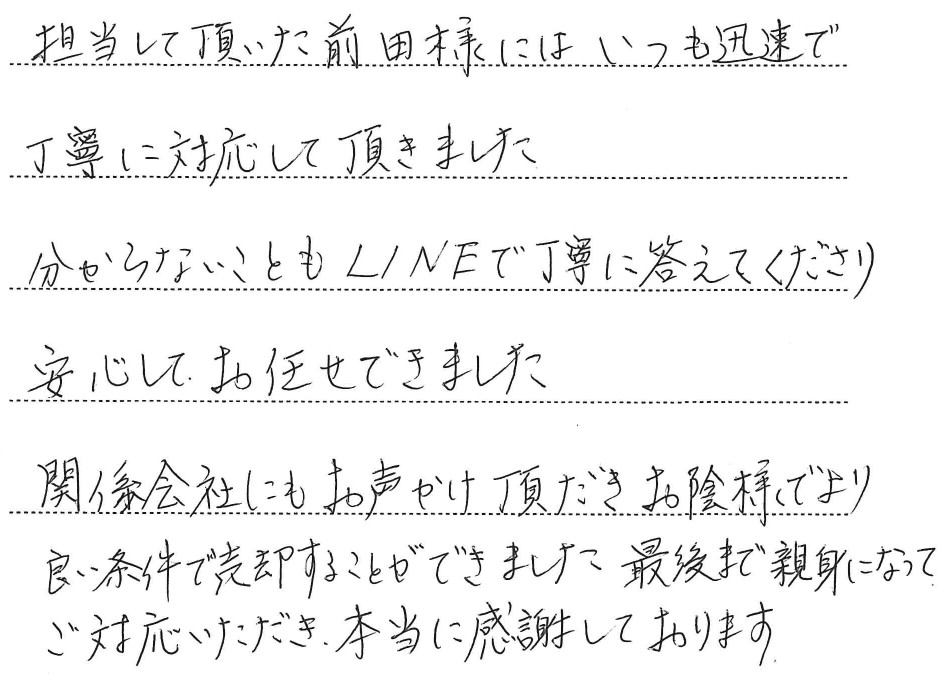 担当して頂いた前田様にはいつも迅速で
丁寧に対応して頂きました
分からないこともLINEで丁寧に答えてくださり
安心して、お任せできました
関係会社にもお声かけ頂だきお陰様でより
良い条件で売却することができました 最後まで親身になって
ご対応いただき、本当に感謝しております